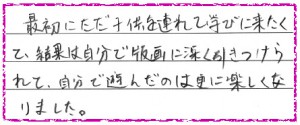 最初にただ子供を連れて学びに来たく
て、結果は自分で版画に深く引きつけら
れて、自分で遊んだのは更に楽しくな
りました。